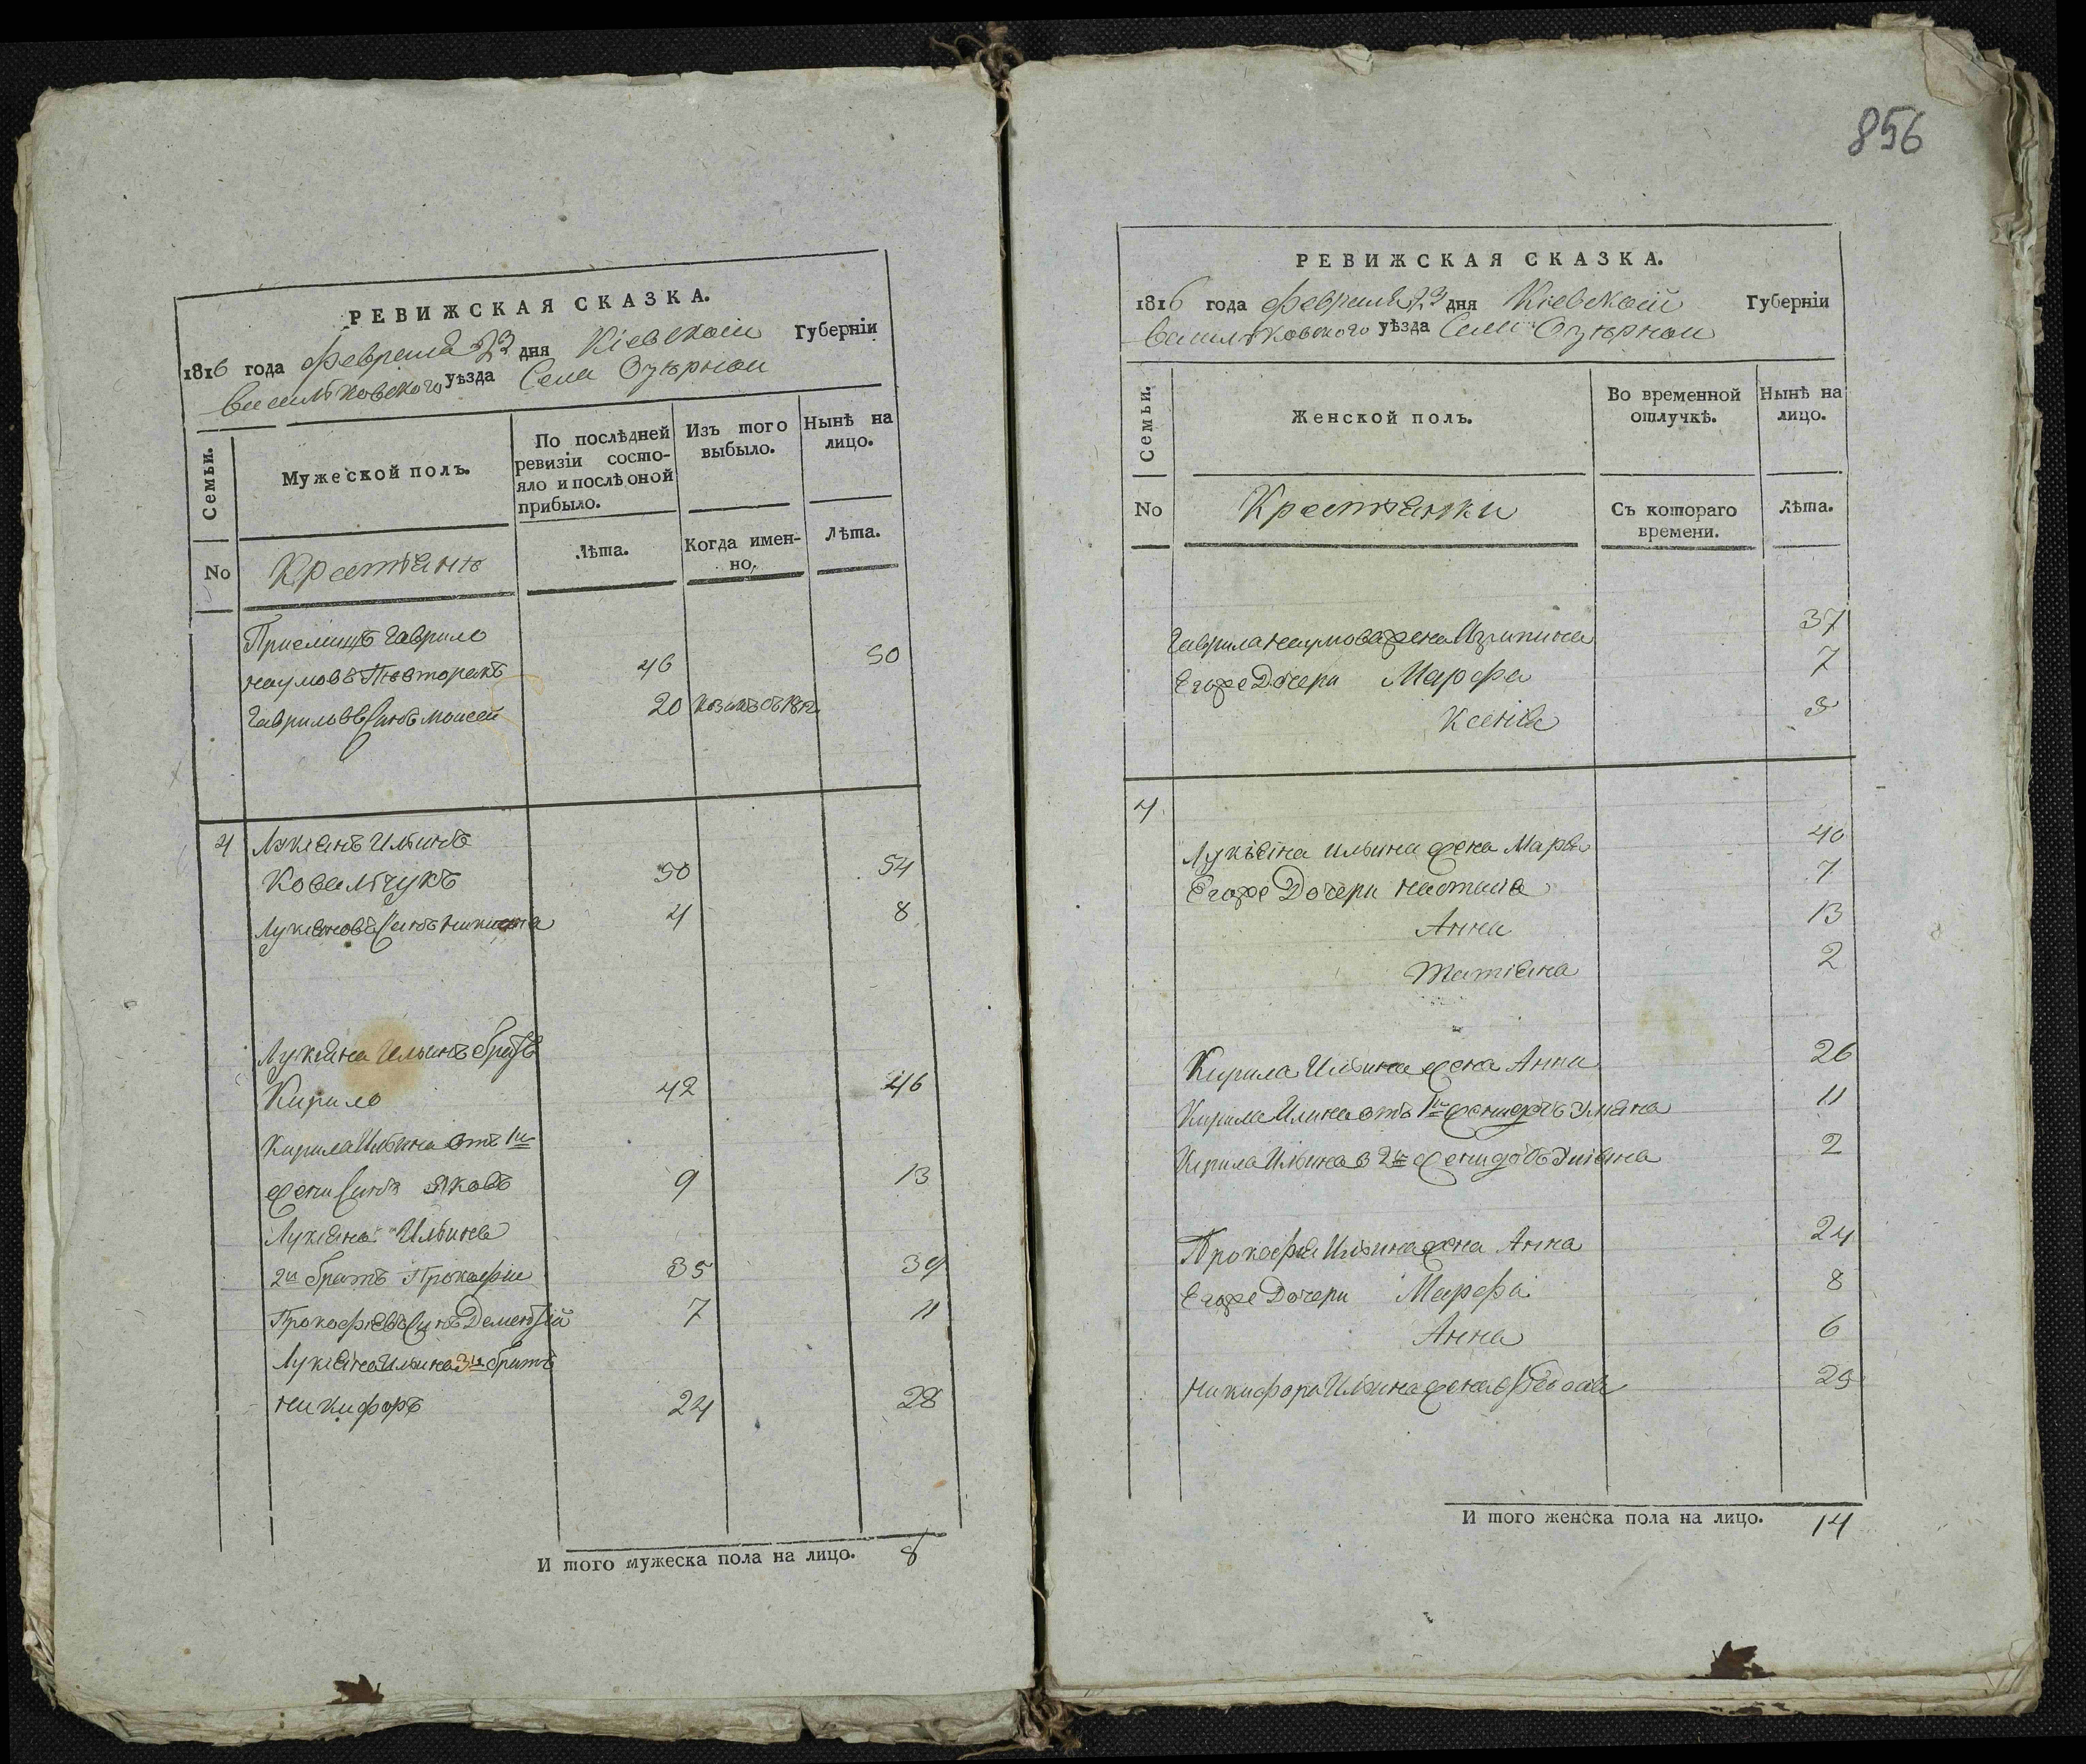 856
РЕВИЖСКАЯ СКАЗКА.
1816 года февраля 23 дня Кіевской Губерніи
Васильковского уѣзда Села Озѣрной
Семьи.
Мужеской полъ.
По послѣдней ревизіи состояло и послѣ оной прибыло.
Изъ того выбыло.
Нынѣ на лицо.
No
Крестьянѣ
Лѣта.
Когда именно,
Лѣта.
Приемишъ Гаврило
Наумовъ Пивторакъ 46 50
Гавриловъ Синъ Моисей 20
4 Лукіянъ Ильинъ
Ковальчукъ 50 54
Лукіяновъ Синъ Никита 4 8
Лукіяна Ильинъ братъ
Кирило 42 46
Кирила Ильина отъ 1й
жени Синъ Яковъ 9 13
Лукіяна Ильина
2й братъ Прокофій 35 39
Прокофіевъ Синъ Дементій 7 11
Лукіяна Ильина 3й братъ
Никифоръ 24 28
И того мужеска пола на лицо. 8
РЕВИЖСКАЯ СКАЗКА.
1816 года февраля 23 дня Кіевской Губерніи
Васильковского уѣзда Села Озѣрной
Семьи.
Женской полъ.
Во временной отлучкѣ.
Нынѣ на лицо.
No
Крестянки
Съ котораго времени.
Лѣта.
Гаврила Наумова жена Агрипина 37
Егоже Дочери Марфа 7
Ксенія 3
4
Лукіяна Ильина жена Маря 40
Егоже Дочери Настасія 7
Анна 13
Татіяна 2
Кирила Ильина жена Анна 26
Кирила Илина отъ 1й жени дочь 11
Кирила Ильина 2й жени дочь 2
Прокофія Ильина жена Анна 24
Егоже Дочери Марфа 8
Анна 6
Никифора Ильина жена Федосія 25
И того женска пола на лицо. 14